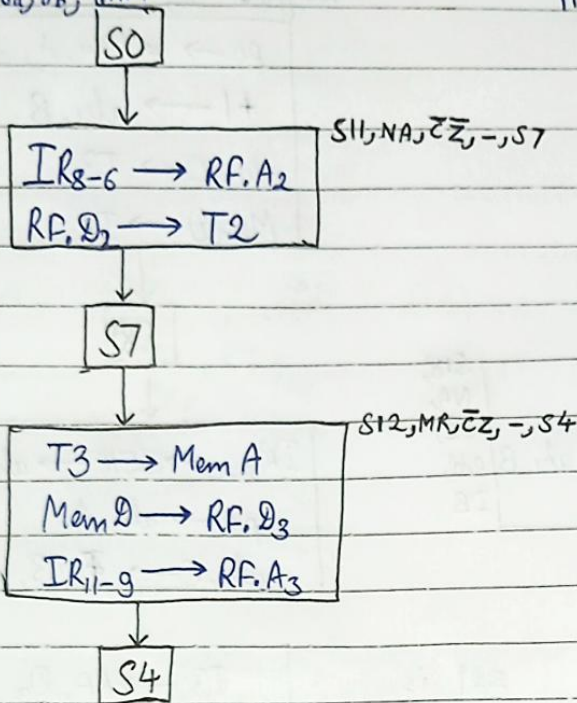 S0
S11, NA, C̅Z̅, -, S7
IR8-6 → RF.A2
RF.D2 → T2
S7
S12, MR, C̅Z, -, S4
T3 → Mem A
Mem D → RF.D3
IR11-9 → RF.A3
S4